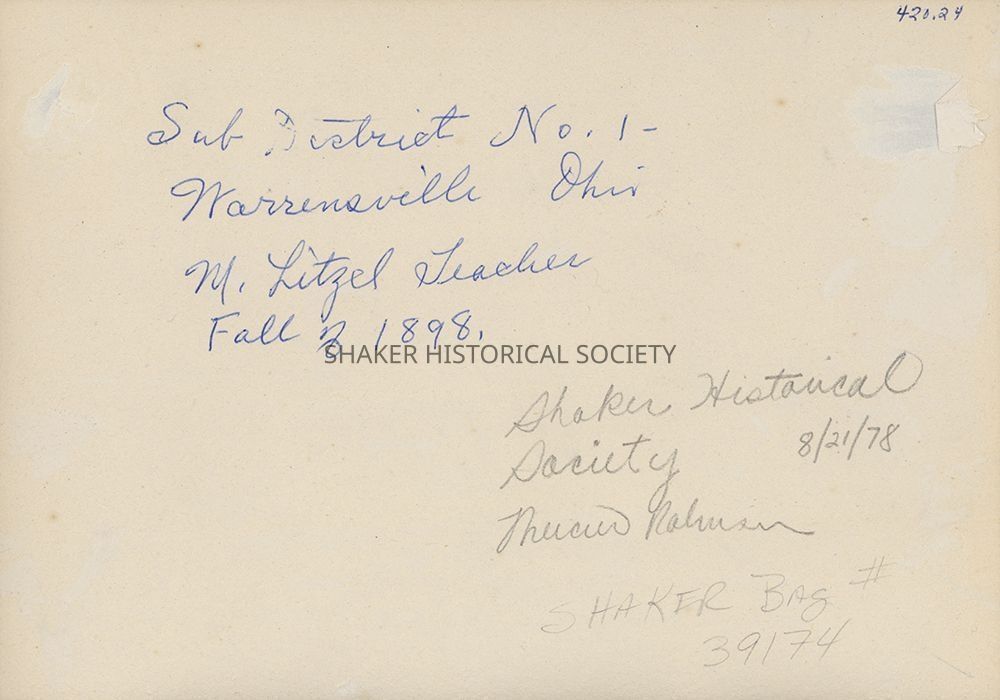 420.24
Sub District No. 1-
Warrensville Ohio
M. Litzel Teacher
Fall 1898.
SHAKER HISTORICAL SOCIETY
Shaker Historical
Society 8/21/78
SHAKER BAG #
39174